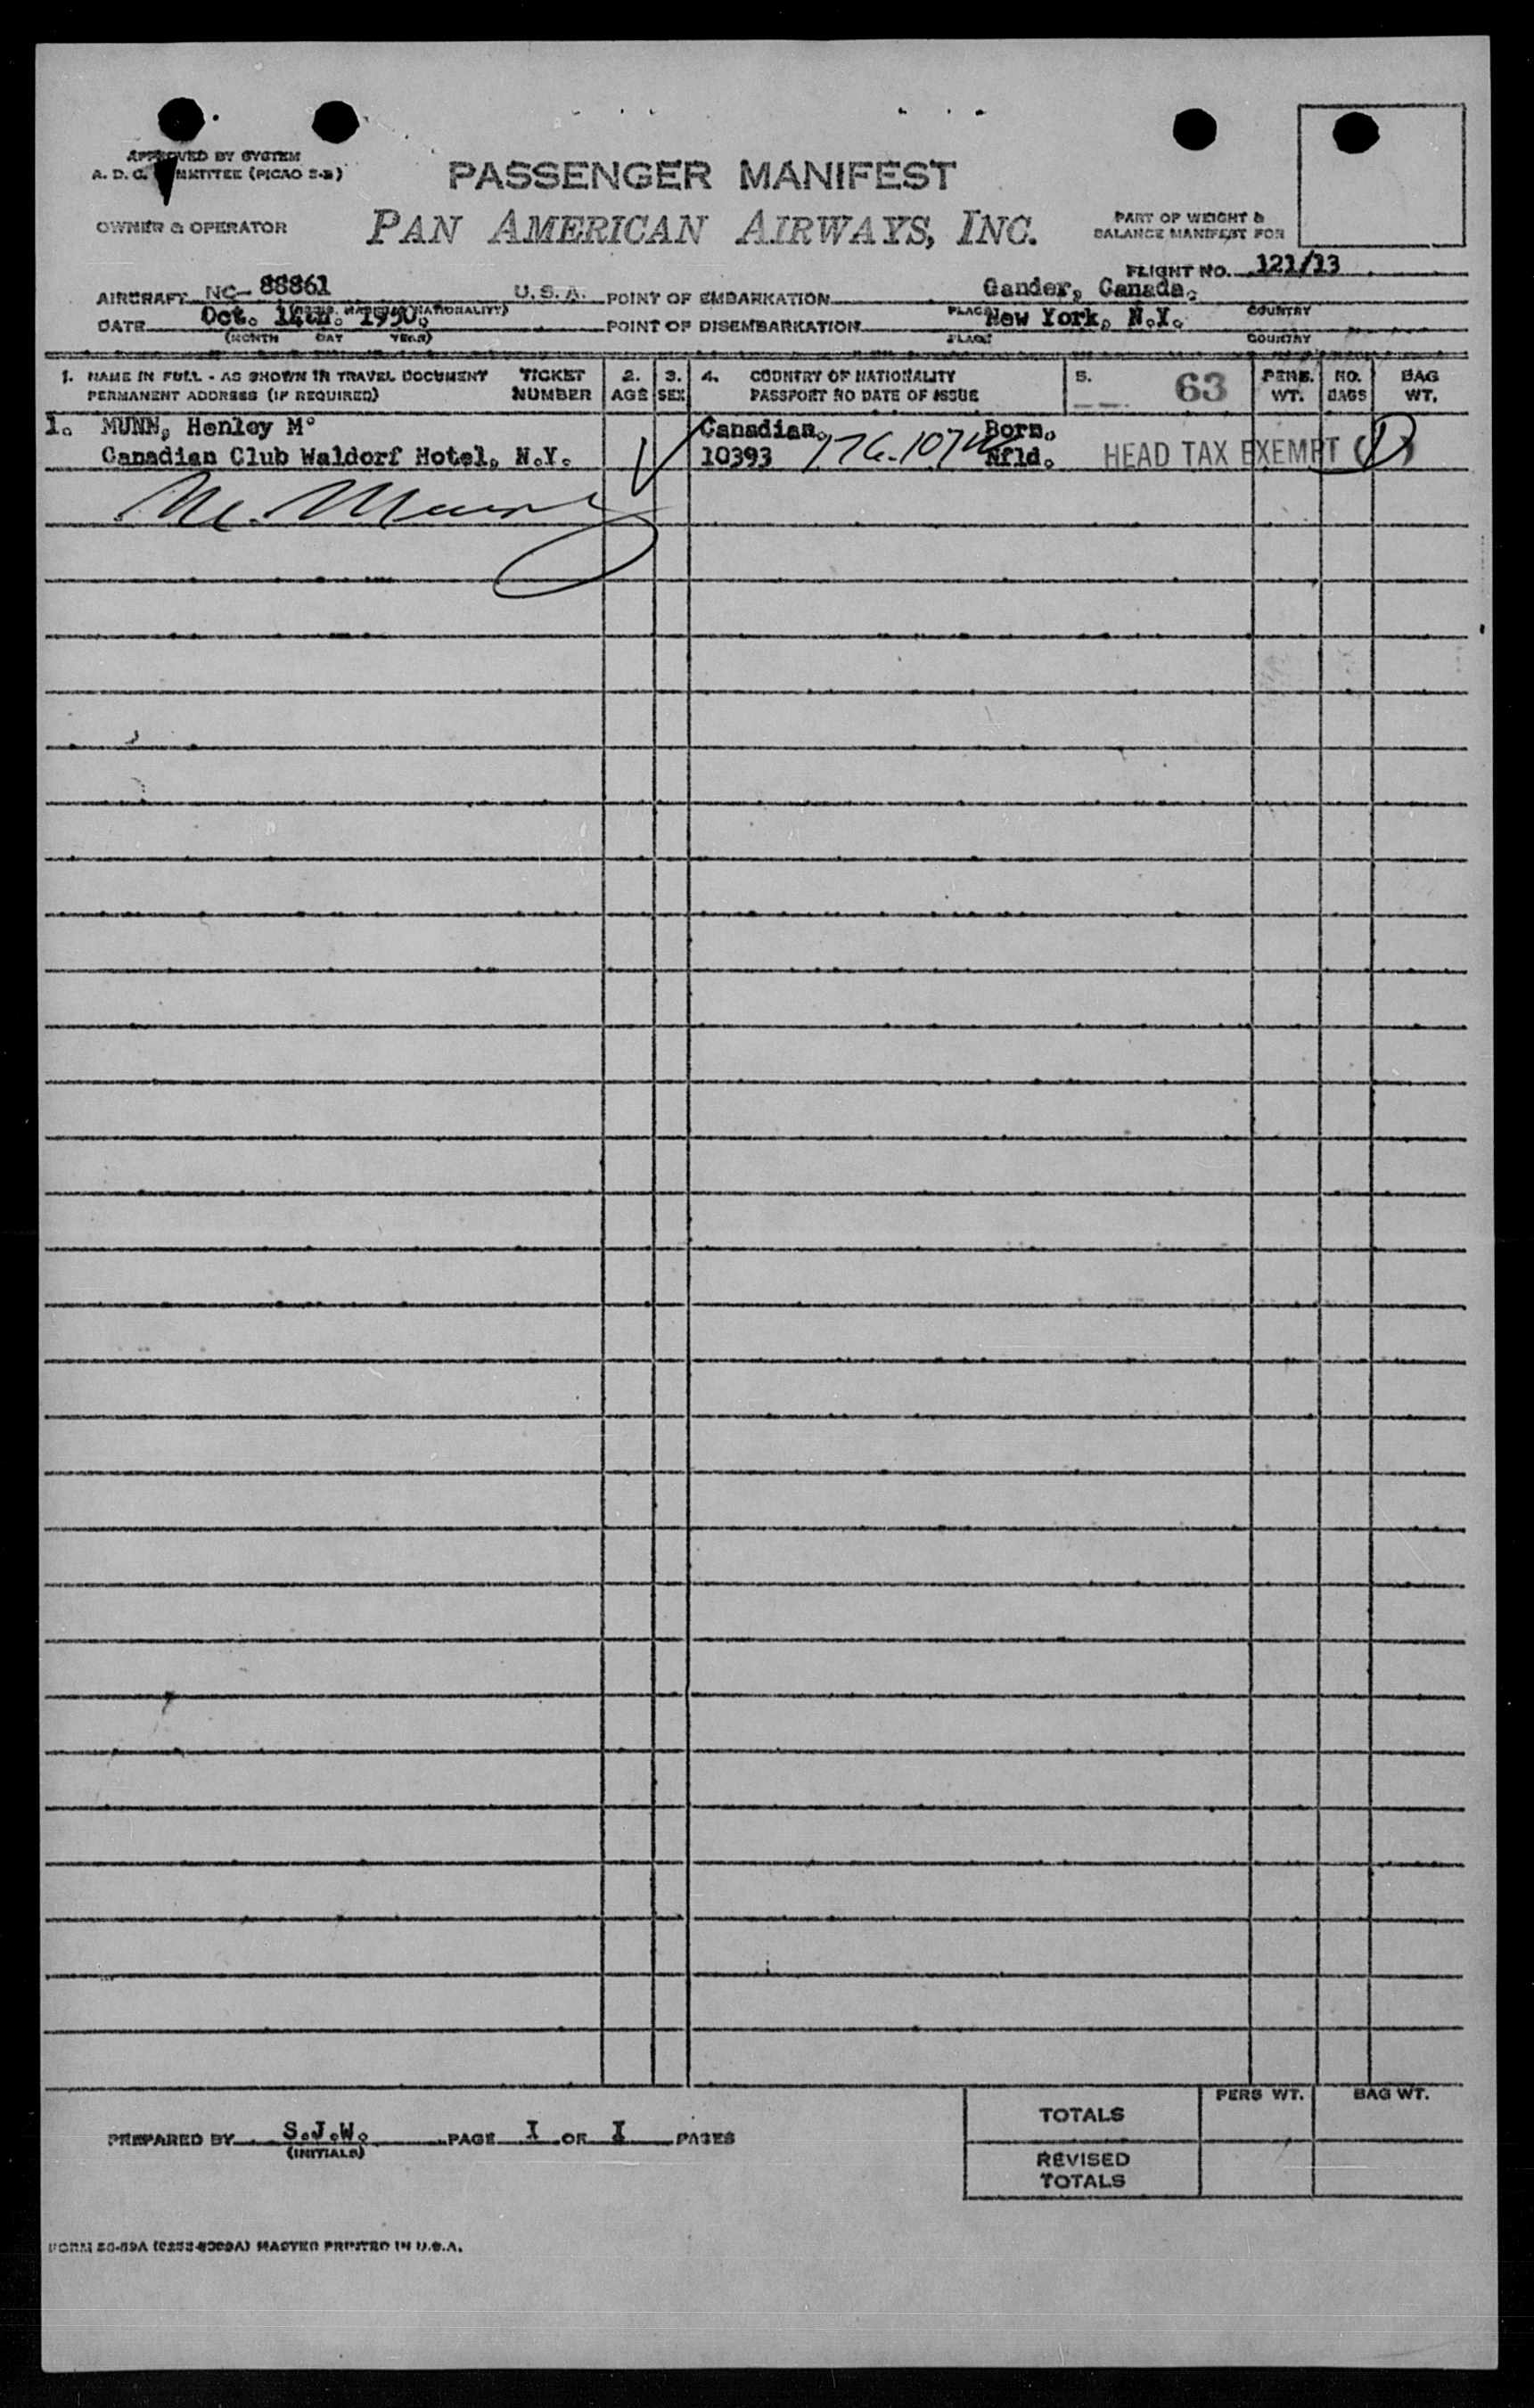 APPROVED BY SYSTEM
A. D. C. COMMITTEE (PICAO 2-3)
PASSENGER MANIFEST
OWNER & OPERATOR
PAN AMERICAN AIRWAYS, INC.
PART OF WEIGHT &
BALANCE MANIFEST FOR
FLIGHT NO. 121/13
AIRCRAFT NC- 88861 U. S. A. POINT OF EMBARKATION Gander, Canada.
(REG. MARKS & NATIONALITY) PLACE COUNTRY
DATE Oct. 14th. 1950. POINT OF DISEMBARKATION New York, N.Y.
(MONTH DAY YEAR) PLACE COUNTRY
1. NAME IN FULL - AS SHOWN IN TRAVEL DOCUMENT TICKET 2. 3. 4. COUNTRY OF NATIONALITY 5. 63 PERS. NO. BAG
PERMANENT ADDRESS (IF REQUIRED) NUMBER AGE SEX PASSPORT NO DATE OF ISSUE WT. BAGS WT.
1. MUNN, Henley M. Canadian. Born.
Canadian Club Waldorf Hotel, N.Y. 10393 Nfld. HEAD TAX EXEMPT (1)
M. Munn
TOTALS PERS WT. BAG WT.
PREPARED BY S.J.W. PAGE I OF I PAGES
(INITIALS)
REVISED
TOTALS
MASTER PRINTED IN U.S.A.